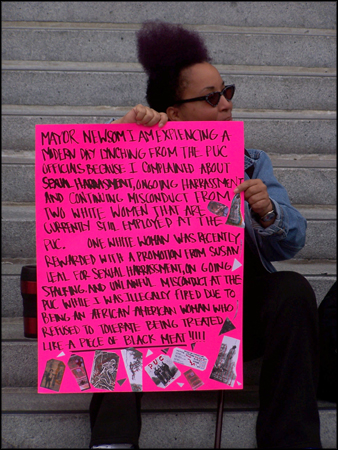 MAYOR NEWSOM I AM EXPIENCING A
MODERN DAY LYNCHING FROM THE PUC
OFFICIALS BECAUSE I COMPLAINED ABOUT
SEXUAL HARRASMENT, ONGOING HARRASSMENT
AND CONTINUING MISCONDUCT FROM
TWO WHITE WOMEN THAT ARE
CURRENTLY STILL EMPLOYED AT THE
PUC. ONE WHITE WOMAN WAS RECENTLY
REWARDED WITH A PROMOTION FROM SUSAN
LEAL FOR SEXUAL HARRASSMENT, ON GOING
STALKING AND UNLAWFUL MISCONDUCT AT THE
PUC WHILE I WAS ILLEGALLY FIRED DUE TO
BEING AN AFRICAN AMERICAN WOMAN WHO
REFUSED TO TOLERATE BEING TREATED
LIKE A PIECE OF BLACK MEAT!!!!
PUC